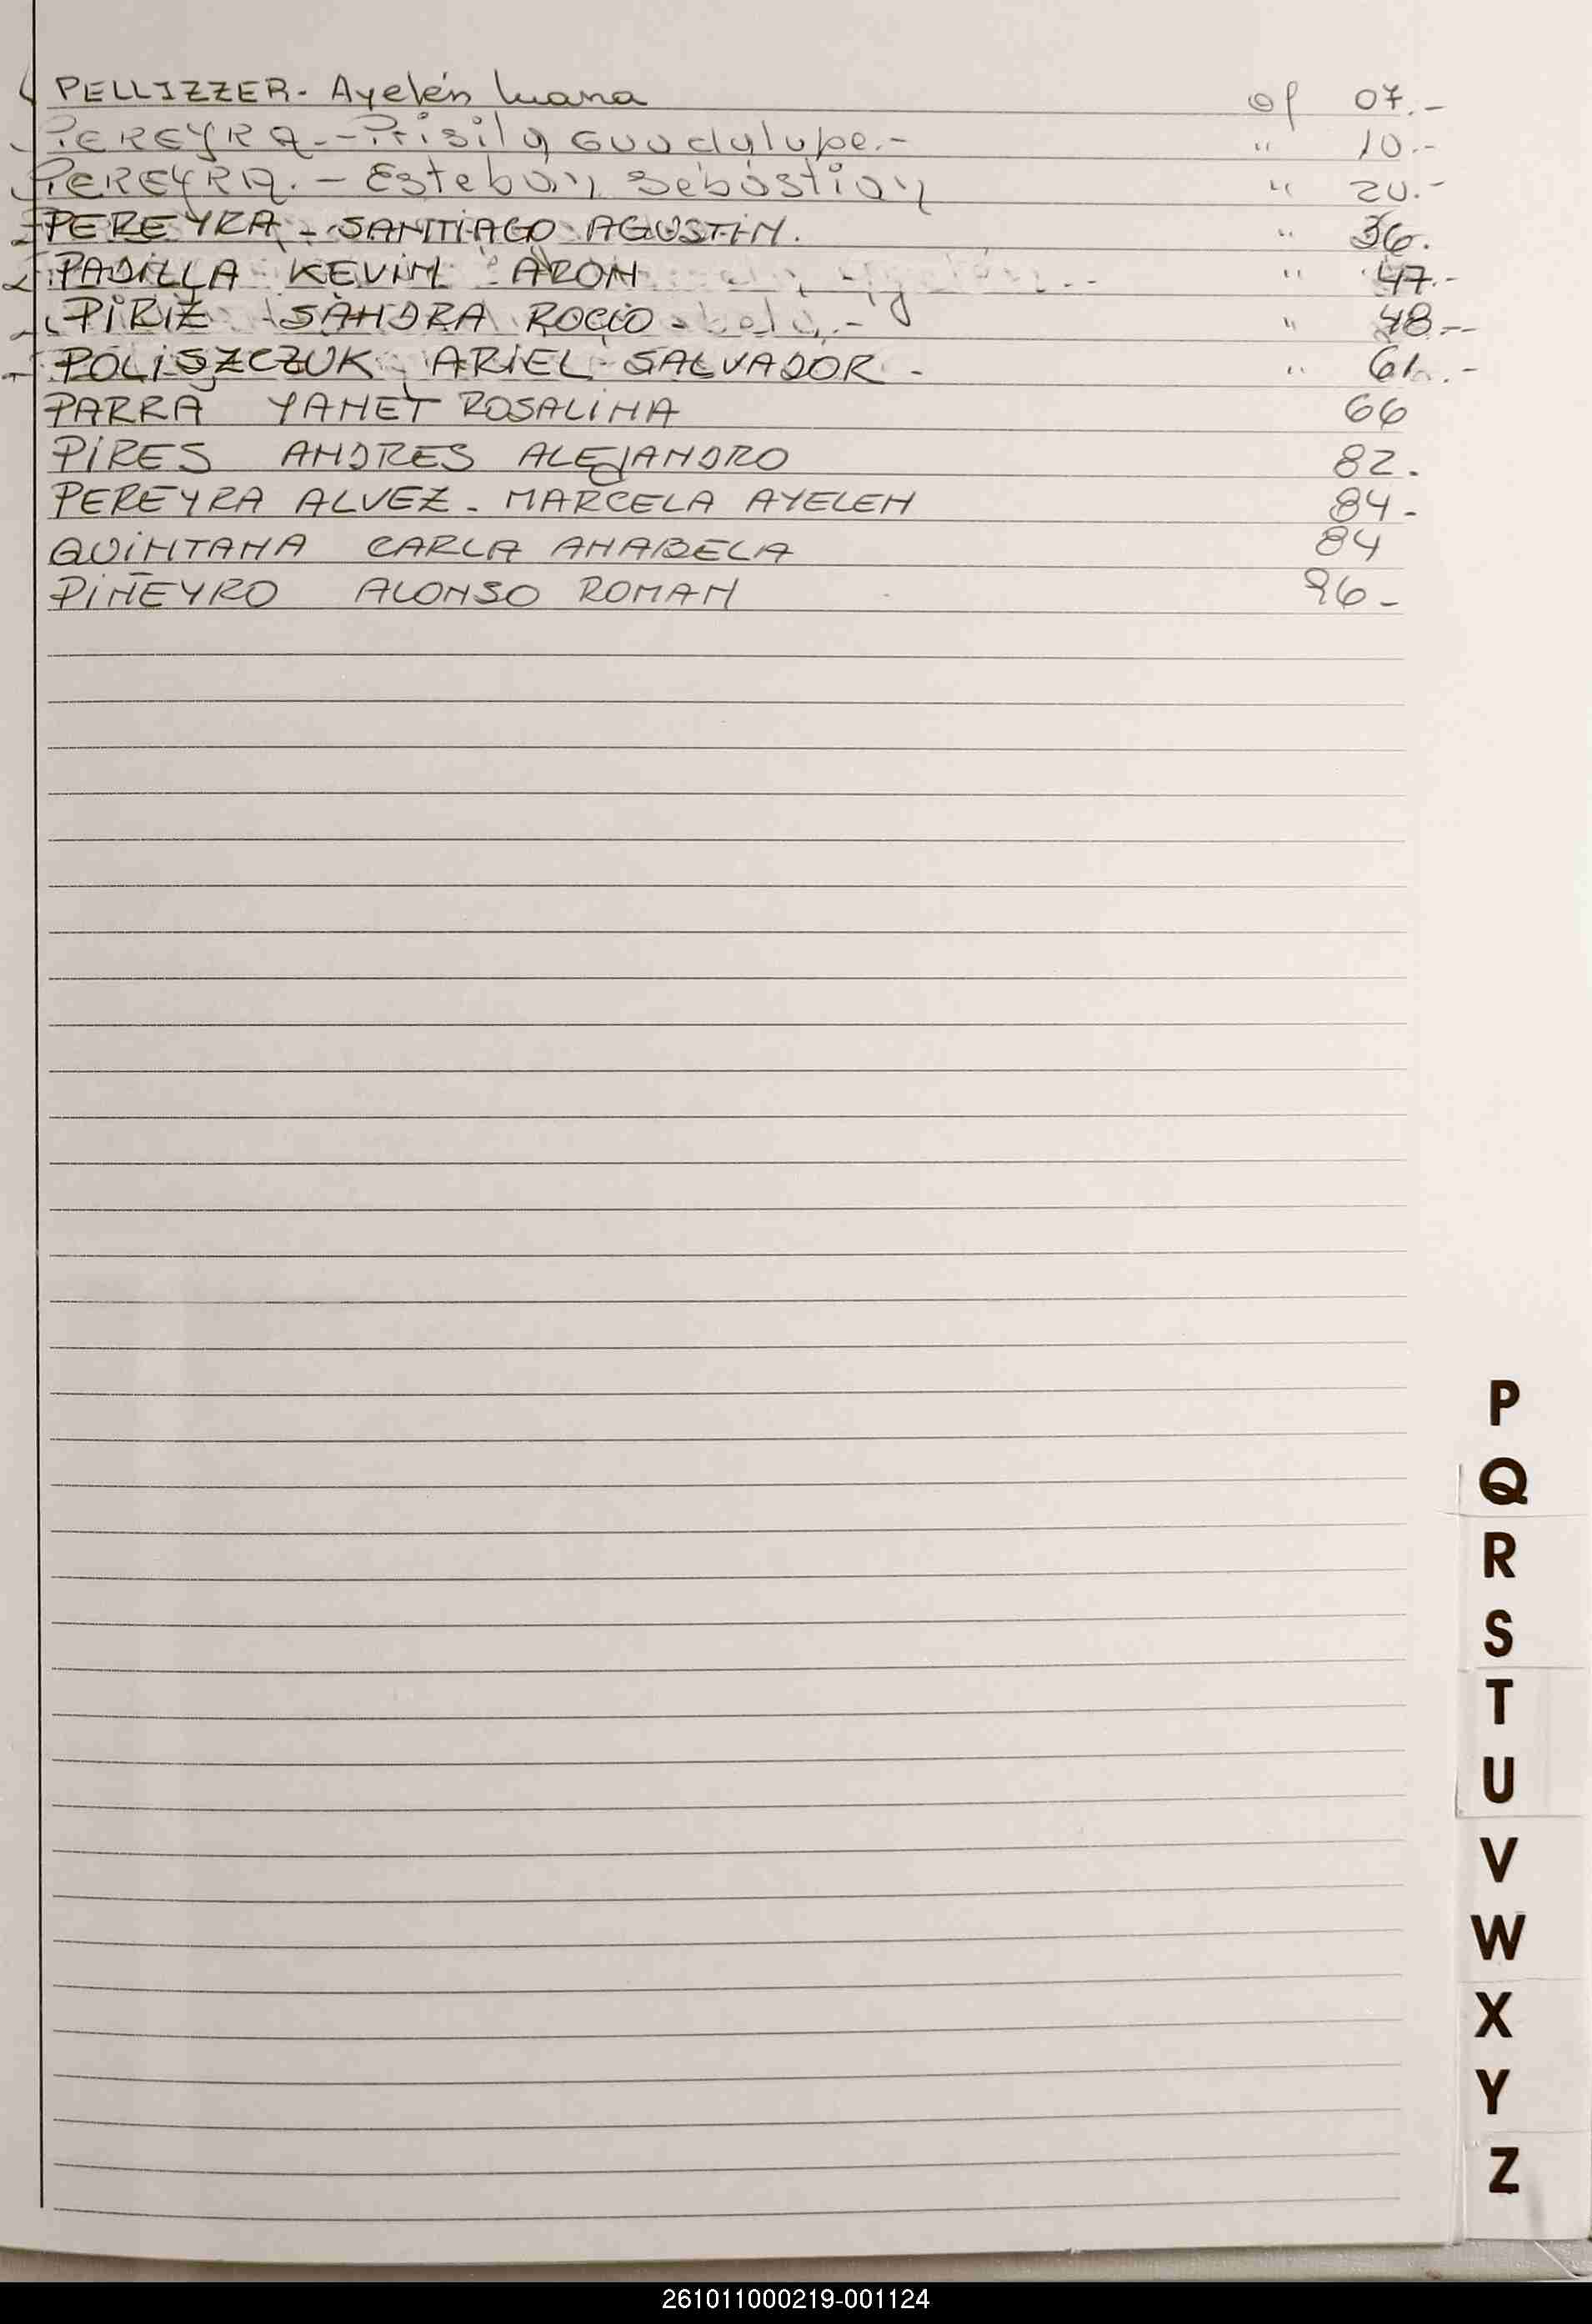 PELLIZZER.- Ayelén Luana of 07.-
PEREYRA.- Prisila Guadalupe.- " 10.-
PEREYRA.- Esteban Sebastian " 20.-
PEREYRA - SANTIAGO AGUSTIN. " 36.
PADILLA KEVIN ARON " 47.-
PIRIZ SANDRA ROCIO - " 48.--
POLISZCZUK ARIEL SALVADOR - " 61.-
PARRA YANET ROSALINA 66
PIRES ANDRES ALEJANDRO 82.
PEREYRA ALVEZ - MARCELA AYELEN 84-
QUINTANA CARLA ANABELA 84
PIÑEYRO ALONSO ROMAN 96-
P
Q
R
S
T
U
V
W
X
Y
Z
261011000219-001124